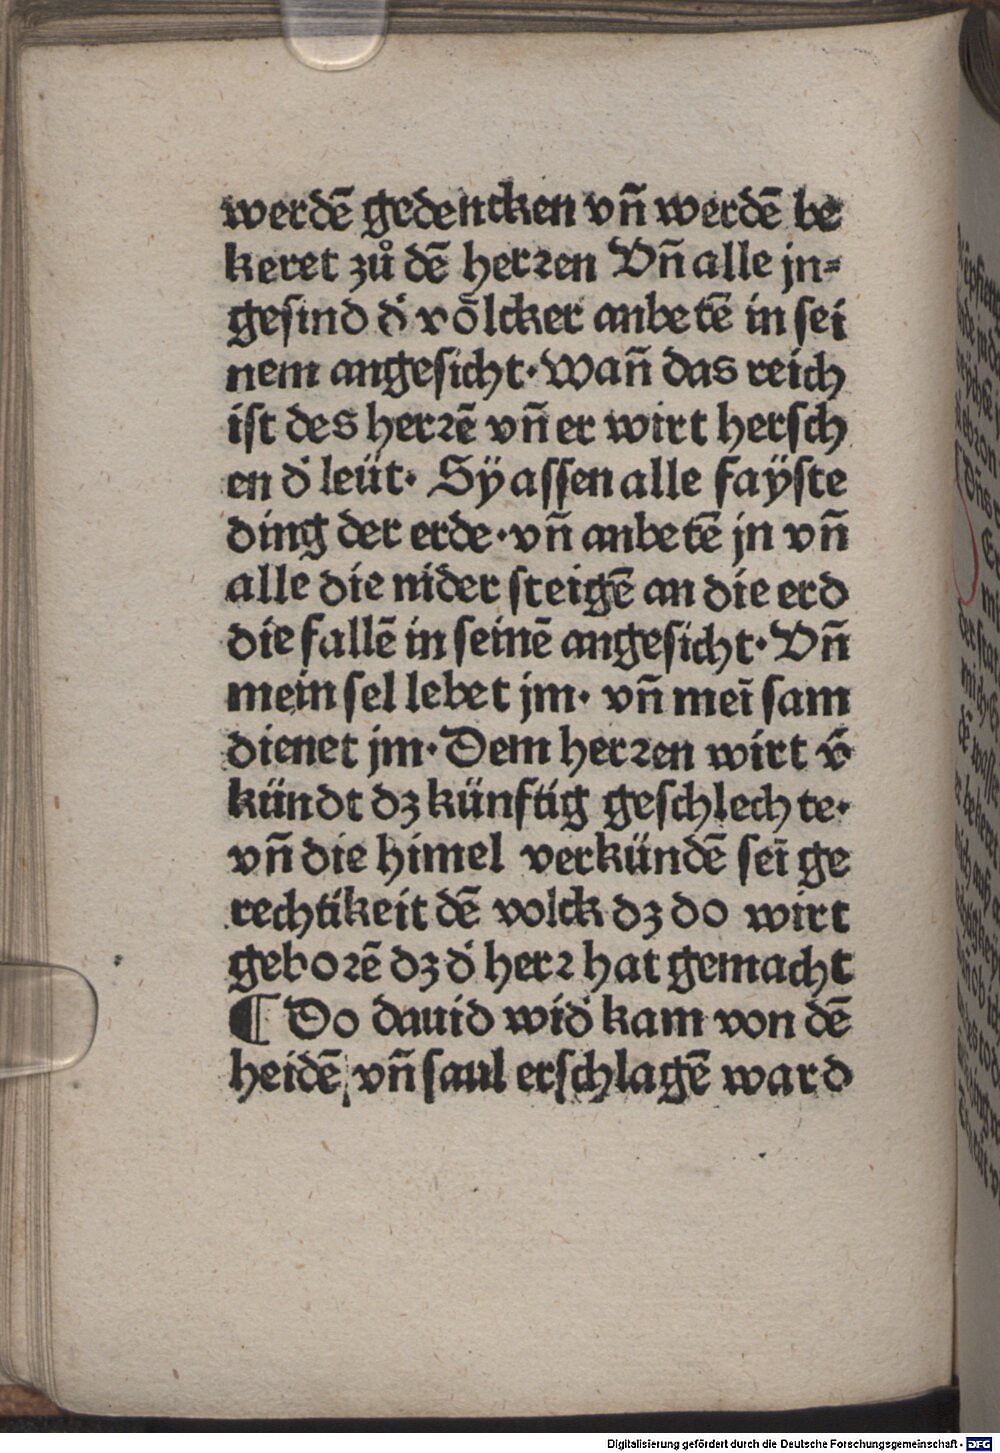 werdē gedencken vñ werdē be
keret zů dē herꝛen Vñ alle jn⸗
gesind d' võlcker anbetē in sei
nem angesicht· Wañ das reich
ist des herꝛē vñ er wirt hersch
en d' leüt· Sÿ assen alle faÿste
ding der erde· vñ anbetē jn vñ
alle die nider steigē an die erd
die fallē in seinē angesicht· Vñ
mein sel lebet jm· vñ meī sam
dienet jm· Dem herꝛen wirt v̄
kündt dz künftig geschlechte·
vñ die himel verkündē seī ge
rechtikeit dē volck dz do wirt
geboꝛē dz d' herꝛ hat gemacht
¶ Do dauid wid' kam von dē
heidē, vñ saul erschlagē ward
Digitalisierung gefördert durch die Deutsche Forschungsgemeinschaft - DFG